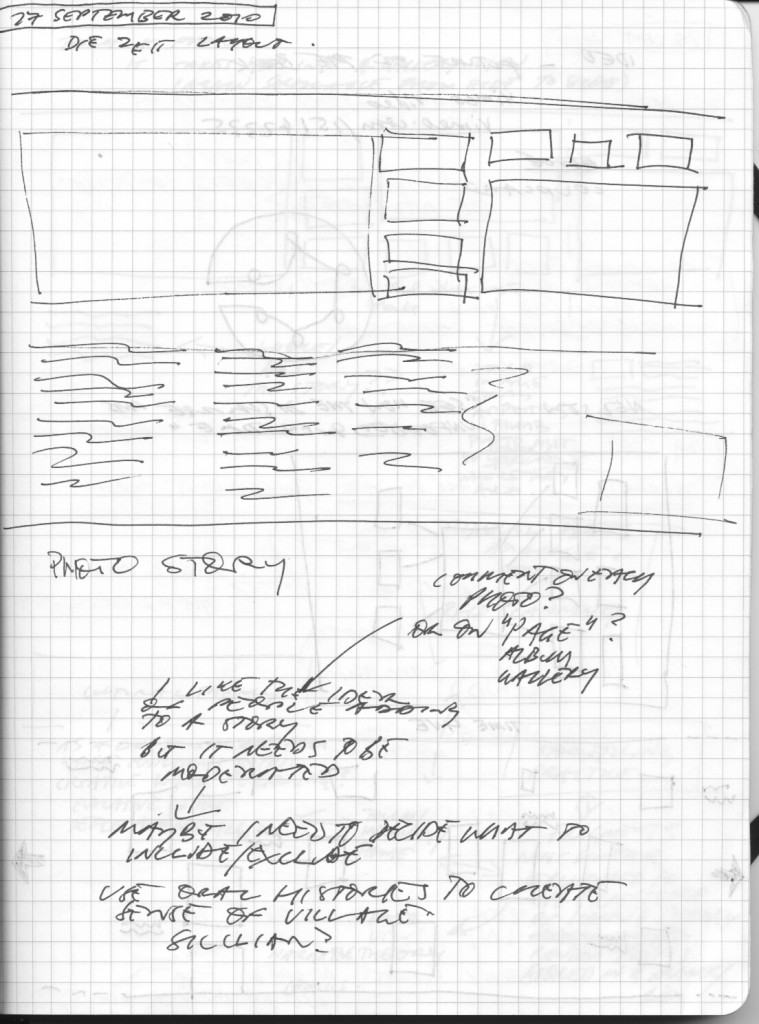 27 SEPTEMBER 2010
DIE ZEIT LAYOUT.
PHOTO STORY
COMMENT ON EACH
PHOTO?
OR ON "PAGE"?
ALBUM
GALLERY
I LIKE THE IDEA
OF PEOPLE ADDING
TO A STORY
BUT IT NEEDS TO BE
MODERATED
MAYBE I NEED TO DECIDE WHAT TO
INCLUDE/EXCLUDE
USE ORAL HISTORIES TO CREATE
SENSE OF VILLAGE.
SICILIAN?